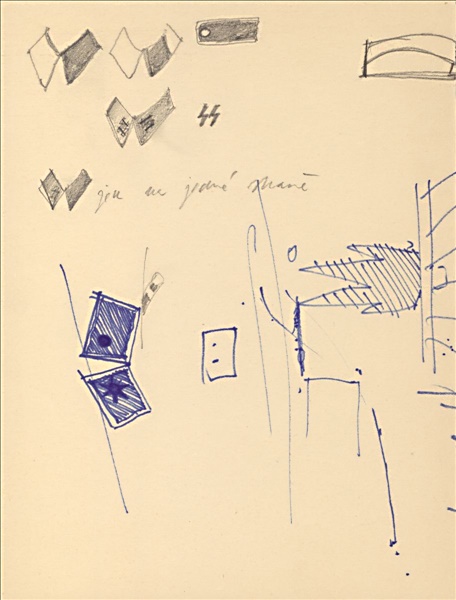 jen na jedné straně